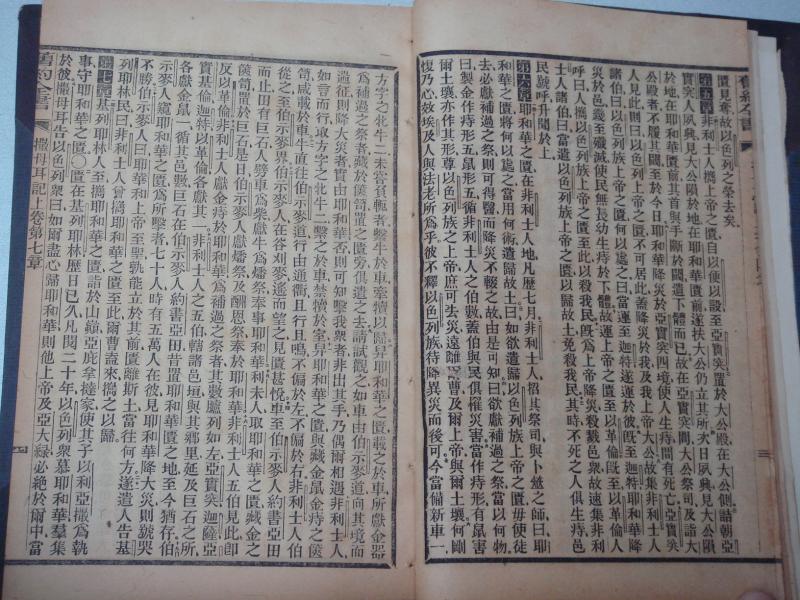 匱見奪故以色列之榮去矣
第五章非利士人攜上帝之匱自以便以設至亞實突置於大公殿在大公側詰朝亞
實突人夙興見大公隕於地在耶和華匱前遂扶大公仍立其所次日夙興見大公隕
於地在耶和華匱前其首與手斷於閾遺下體而已故在亞實突間大公祭司及詣大
公殿者不履其閾至於今日耶和華降災於亞實突四境使人生痔間有死亡亞實突
人見此則曰以色列族上帝之匱不可居此蓋降災於我及我上帝大公故集非利士人
諸伯曰以色列族上帝之匱何以處之曰當運至迦特遂運於彼既至迦特耶和華降
災於邑幾至殲滅使民無長幼生痔於下體故運上帝之匱至以革倫既至以革倫人
呼曰人攜以色列族上帝之匱至此以殺我民既爲上帝降災殺戮邑衆故速集非利
士人諸伯曰當遣以色列族上帝之匱以歸故土免殺我民其時不死之人俱生痔邑
民號呼升聞於上
第六章耶和華之匱在非利士人地凡歷七月非利士人招其祭司與卜筮之師曰耶
和華之匱將何以處之當用何術遣歸故土曰如欲遣歸以色列族上帝之匱毋使徒
去必獻補過之祭則可得醫而降災不輟之故由是可知曰欲獻補過之祭當以何物
曰製金作痔形五鼠形五循非利士人伯之數蓋伯與民俱罹災害當作痔形有鼠害
爾土壤亦作其形尊以色列族之上帝庶可去災遠離爾曹及爾上帝與爾土壤何剛
愎乃心效埃及人與法老所爲乎彼不釋以色列族待降異災而後可今當備新車一
方字之北牛二未嘗負軛者繫牛於車牽犢以歸舁耶和華之匱載之於車所獻金器
爲補過之祭者藏於篋笥置之匱旁俱遺之去請試觀之如車由伯示麥道向其境而
遄征則降大災者實由耶和華否則可知擊我衆者非出其手乃偶爾相遇非利士人
如言而行取方字之北牛二繫之於車禁犢於室舁耶和華之匱與藏金鼠金痔之篋
笥咸載於車牛直往伯示麥道行由通衢且行且鳴不偏於左不偏於右非利士人伯
從之至伯示麥界伯示麥人在谷刈麥遙而望之見匱甚悅車至伯示麥人約書亞田
而止田有巨石人劈車爲柴獻牛爲燔祭奉事耶和華利未人取耶和華之匱藏金之
篋笥置於巨石是日伯示麥人獻燔祭及酬恩祭奉於耶和華非利士人五伯見此卽
反以革倫非利士人獻金痔於耶和華爲補過之祭者其數臚列如左亞實突迦薩亞
實基倫迦特以革倫各獻其一非利士人之五伯轄諸邑垣與其鄉里延及巨石之所
各獻金鼠一循其邑數巨石在伯示麥人約書亞田昔置耶和華匱之地至今猶存伯
示麥人窺耶和華之匱爲所擊者七十人時有五萬人在彼見耶和華降大災則號哭
不勝伯示麥人曰耶和華上帝至聖孰能立於其前匱離斯土當往何方遂遣人告基
列耶林民曰非利士人曾攜耶和華之匱至此爾曹蓋來攜之以歸
第七章基列耶林人至攜耶和華之匱詣於山巔亞庇拿撻家使其子以利亞撒爲執
事守耶和華之匱〇匱在基列耶林歷日已久凡閱二十年以色列衆慕耶和華羣集
於彼撒母耳告以色列衆曰如爾盡心歸耶和華則他上帝及亞大綠必絕於爾中當
舊約全書
撒母耳記上卷第七章